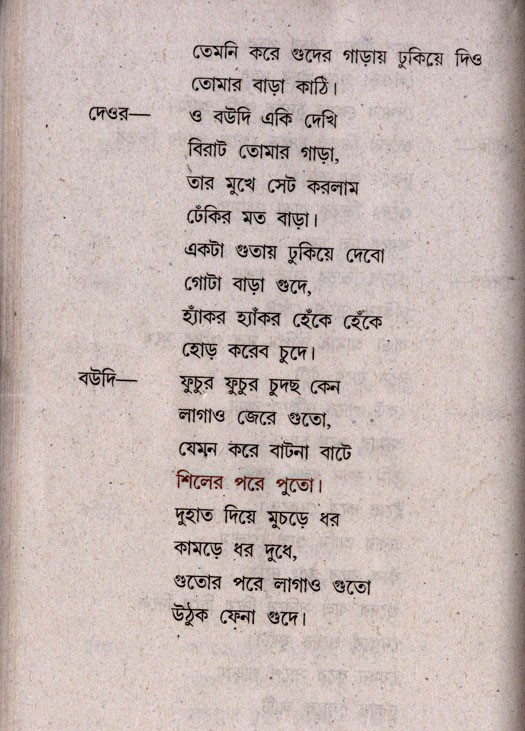 তেমনি করে গুদের গাড়ায় ঢুকিয়ে দিও
তোমার বাড়া কাঠি।
দেওর— ও বউদি একি দেখি
বিরাট তোমার গাড়া,
তার মুখে সেট করলাম
ঢেঁকির মত বাড়া।
একটা গুতায় ঢুকিয়ে দেবো
গোটা বাড়া গুদে,
হ্যাঁকর হ্যাঁকর হেঁকে হেঁকে
হোড় করেব চুদে।
বউদি— ফুচুর ফুচুর চুদছ কেন
লাগাও জেরে গুতো,
যেমন করে বাটনা বাটে
শিলের পরে পুতো।
দুহাত দিয়ে মুচড়ে ধর
কামড়ে ধর দুধে,
গুতোর পরে লাগাও গুতো
উঠুক ফেনা গুদে।